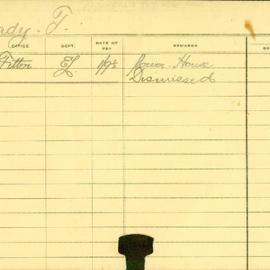 ady. T.
OFFICE DEPT. RATE OF PAY REMARKS
Fitter EL 1/9½ Power House
Dismissed